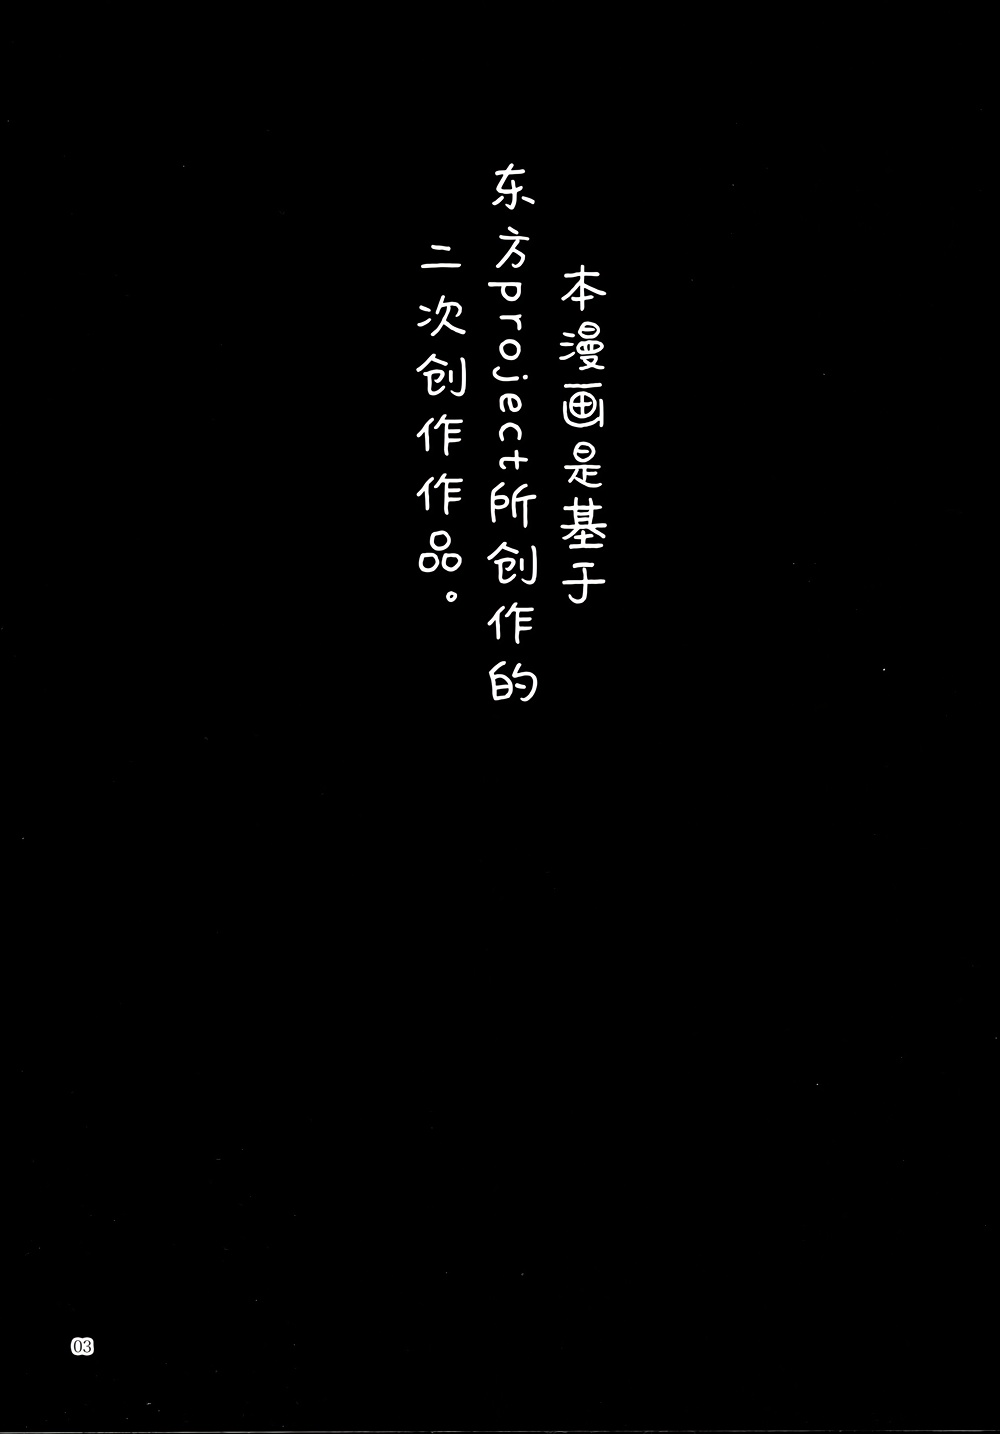 本漫画是基于
东方project所创作的
二次创作作品。
03